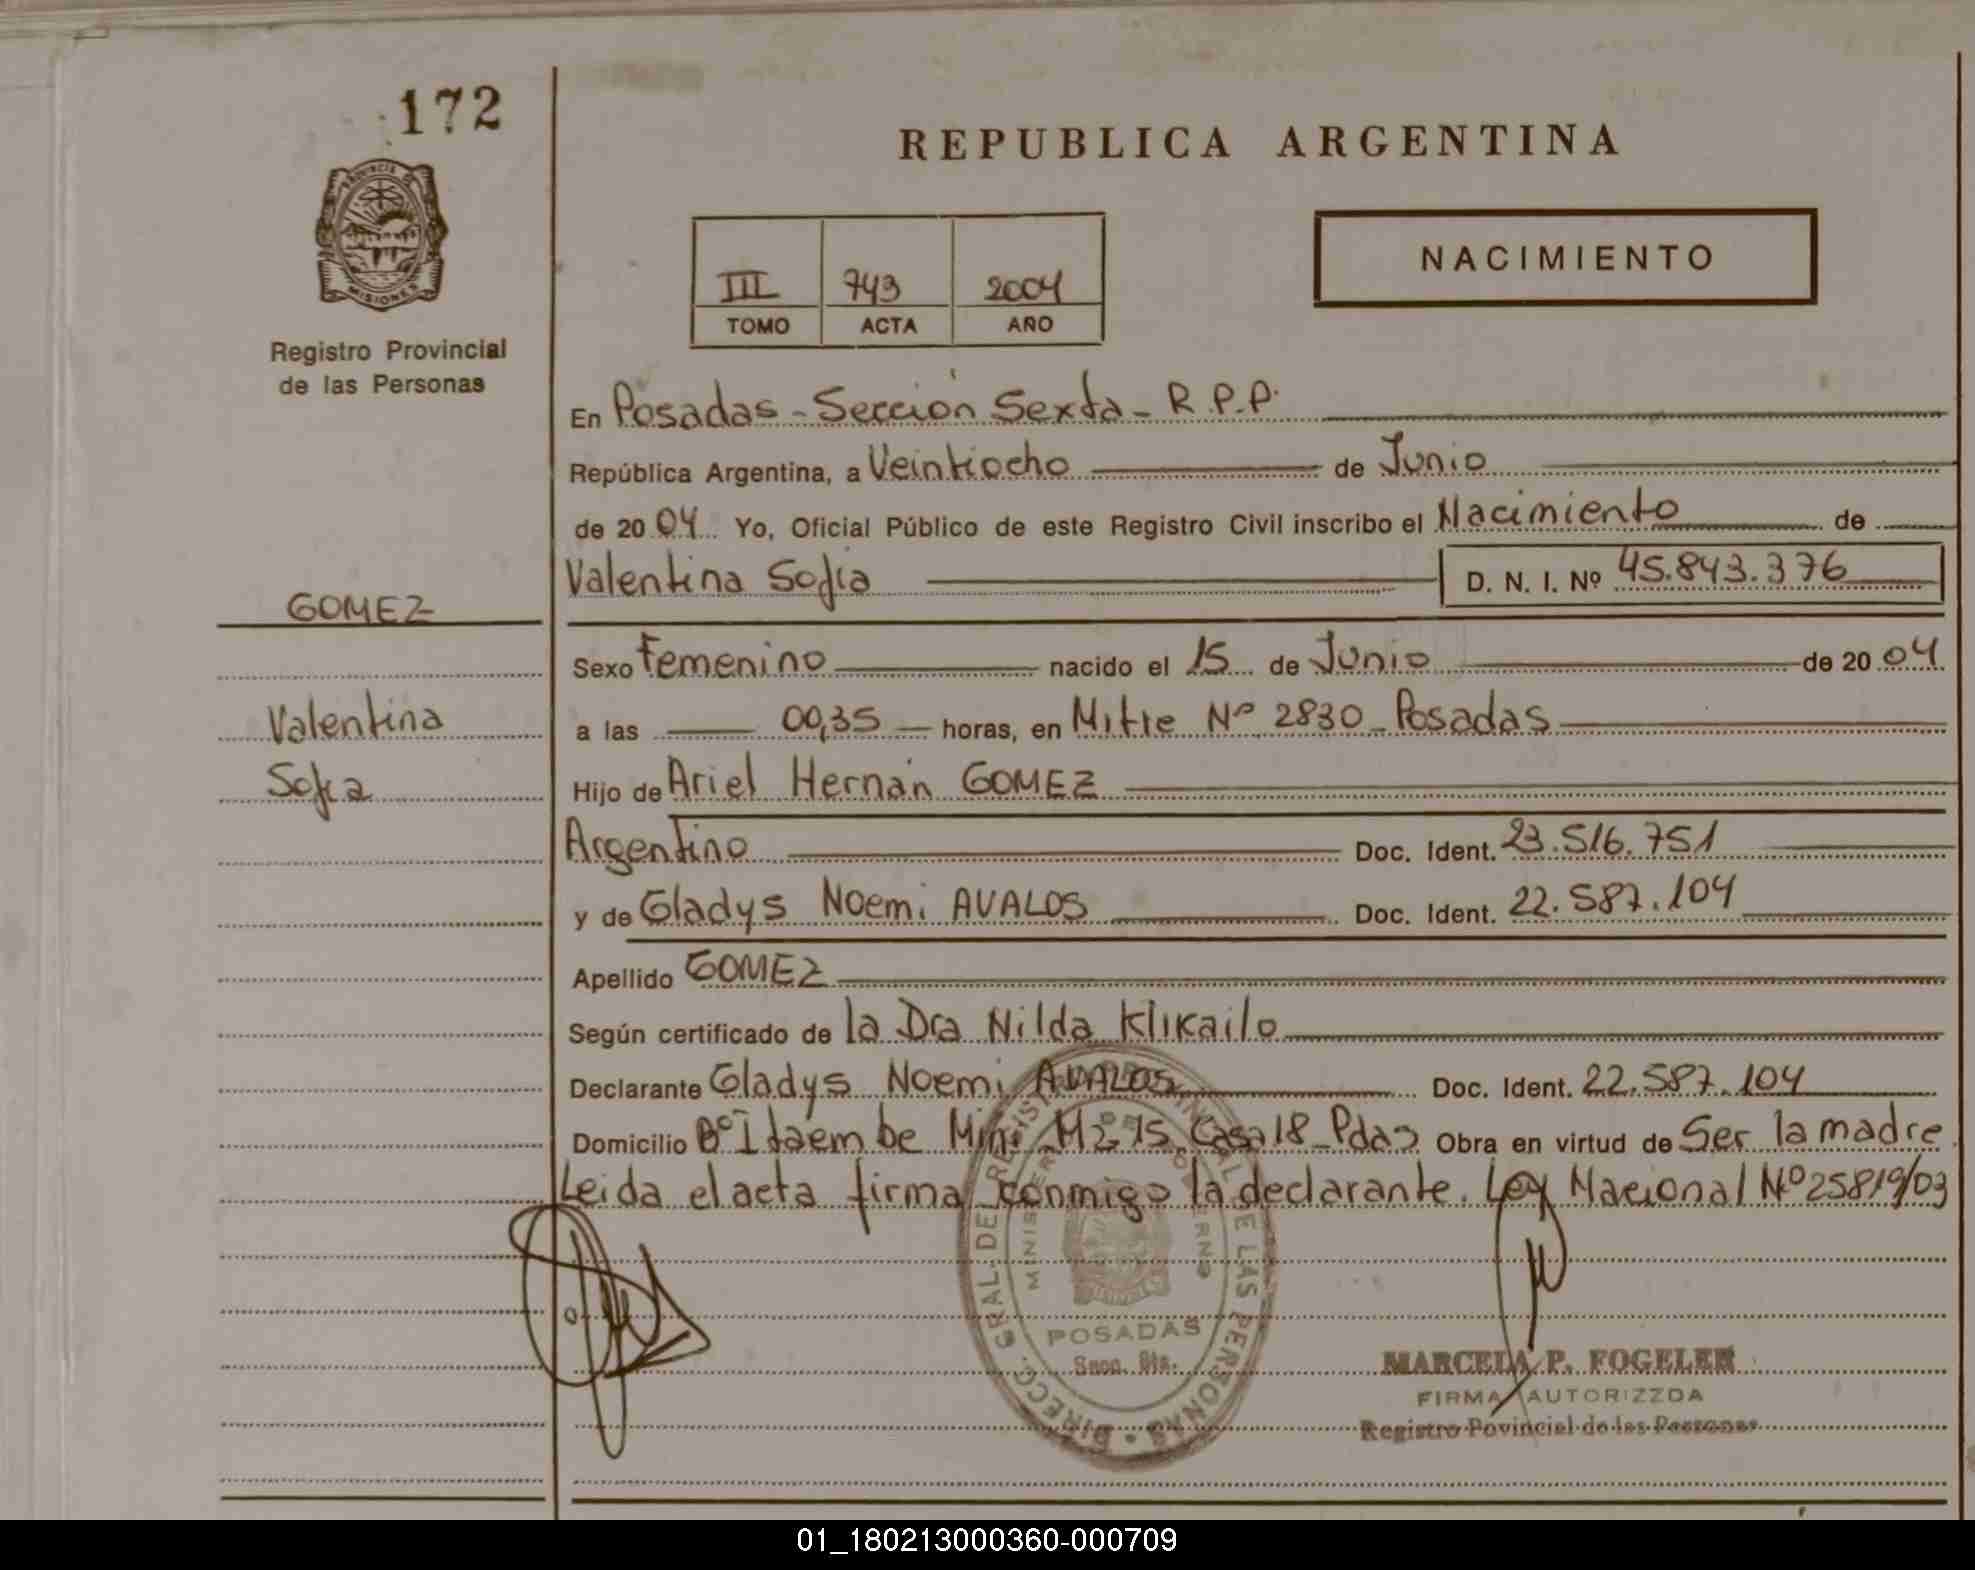 172
REPUBLICA ARGENTINA
PROVINCIA DE
MISIONES
NACIMIENTO
III 743 2004
TOMO ACTA AÑO
Registro Provincial
de las Personas
En Posadas - Sección Sexta - R.P.P.
República Argentina, a Veintiocho de Junio
de 20 04 Yo, Oficial Público de este Registro Civil inscribo el Nacimiento de
Valentina Sofia D. N. I. Nº 45.843.376
GOMEZ
Sexo Femenino nacido el 15 de Junio de 20 04
Valentina
a las 00,35 horas, en Mitre Nº 2830 - Posadas
Sofia
Hijo de Ariel Hernán GOMEZ
Argentino Doc. Ident. 23.516.751
y de Gladys Noemi AVALOS Doc. Ident. 22.587.104
Apellido GOMEZ
Según certificado de la Dra Nilda Klikailo
Declarante Gladys Noemi AVALOS Doc. Ident. 22.587.104
Domicilio Bº Itaembe Mini Mz 15 Casa 18 - Pdas Obra en virtud de Ser la madre
Leida el acta firma conmigo la declarante. Ley Nacional Nº 25819/03
DIRECC. GRAL. DEL REGISTRO PROVINCIAL DE LAS PERSONAS
MINISTERIO DE GOBIERNO
POSADAS
Secc. 6ta.
MARCELA P. FOGELER
FIRMA AUTORIZZDA
Registro Povincial de las Personas
01_180213000360-000709